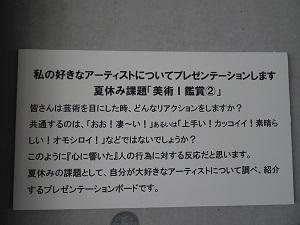 私の好きなアーティストについてプレゼンテーションします
夏休み課題「美術Ⅰ鑑賞②」
皆さんは芸術を目にした時、どんなリアクションをしますか？
共通するのは、「おお！凄～い！」あるいは「上手い！カッコイイ！素晴ら
しい！オモシロイ！」などではないでしょうか？
このように『心に響いた』人の行為に対する反応だと思います。
夏休みの課題として、自分が大好きなアーティストについて調べ、紹介
するプレゼンテーションボードです。